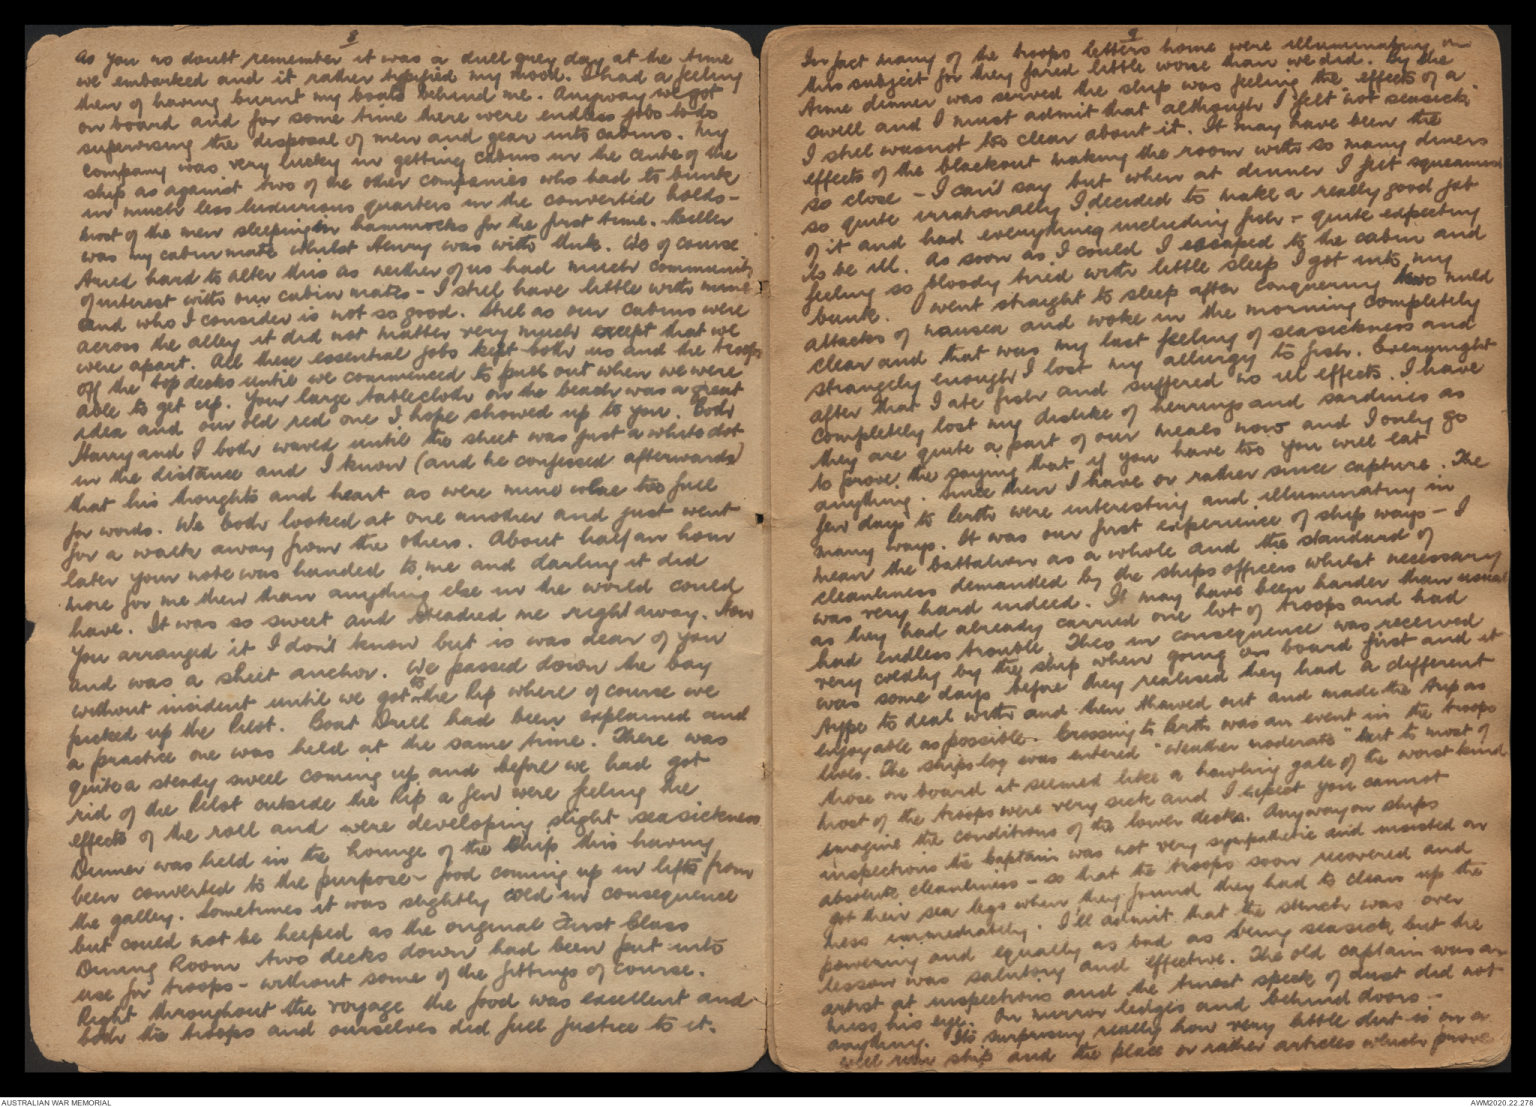 8
As you no doubt remember it was a dull grey day at the time
we embarked and it rather typified my mood. I had a feeling
then of having burnt my boats behind me. Anyway we got
on board and for some time there were endless jobs to do
supervising the disposal of men and gear into cabins. My
Company was very lucky in getting cabins in the centre of the
ship as against two of the other companies who had to bunk
in much less luxurious quarters in the converted holds -
most of the men sleeping in hammocks for the first time.
was my cabin mate whilst Henry was with We of course
tried hard to alter this as neither of us had much community
of interest with our cabin mates - I still have little with mine
and who I consider is not so good. Still as our cabins were
across the alley it did not matter very much except that we
were apart. All these essential jobs kept both us and the troops
off the top decks until we commenced to pull out when we were
able to get up. Your large tablecloth on the beach was a great
idea and our old red one I hope showed up to you. Both
Harry and I both waved until the sheet was just a white dot
in the distance and I know (and he confessed afterwards)
that his thoughts and heart as were mine were too full
for words. We both looked at one another and just went
for a walk away from the others. About half an hour
later your note was handed to me and darling it did
more for me then than anything else in the world could
have. It was so sweet and steadied me right away. How
you arranged it I don't know but is was dear of you
and was a sheet anchor. We passed down the bay
without incident until we got to the Rip where of course we
picked up the Pilot. Boat Drill had been explained and
a practice one was held at the same time. There was
quite a steady swell coming up and before we had got
rid of the Pilot outside the Rip a few were feeling the
effects of the roll and were developing slight seasickness
Dinner was held in the Lounge of the Ship this having
been converted to the purpose - food coming up in lifts from
the galley. Sometimes it was slightly cold in consequence
but could not be helped as the original First Class
Dining Room two decks down had been put into
use for troops - without some of the fittings of course.
Right throughout the voyage the food was excellent and
both the troops and ourselves did full justice to it.
9
In fact many of the troops letters home were illuminating on
this subject for they fared little worse than we did. By the
time dinner was served the ship was feeling the effects of a
swell and I must admit that although I felt "not seasick"
I still was not too clear about it. It may have been the
effects of the blackout making the room with so many diners
so close - I can't say but when at dinner I felt squeamish
so quite irrationally I decided to make a really good job
of it and had everything including fish - quite expecting
to be ill. As soon as I could I escaped to the cabin and
feeling so bloody tired with little sleep I got into my
bunk. I went straight to sleep after conquering two mild
attacks of nausea and woke in the morning completely
clear and that was my last feeling of seasickness and
strangely enough I lost my allergy to fish. Every night
after that I ate fish and suffered no ill effects. I have
completely lost my dislike of herrings and sardines as
they are quite a part of our meals now and I only go
to prove the saying that if you have to you will eat
anything. Since then I have or rather since capture. The
few days to Perth were interesting and illuminating in
many ways. It was our first experience of ship ways - I
mean the battalion as a whole and the standard of
cleanliness demanded by the ships officers whilst necessary
was very hard indeed. It may have been harder than usual
as they had already carried one lot of troops and had
had endless trouble. Thus in consequence was received
very coldly by the ship when going on board first and it
was some days before they realised they had a different
type to deal with and then thawed out and made the trip as
enjoyable as possible. Crossing to Perth was an event in the troops
lives. The ships log was entered "Weather moderate" but to most of
those on board it seemed like a howling gale of the worst kind
most of the troops were very sick and I expect you cannot
imagine the conditions of the lower decks. Anyway on ships
inspections the Captain was not very sympathetic and insisted on
absolute cleanliness - so that the troops soon recovered and
got their sea legs when they found they had to clean up the
mess immediately. I'll admit that the stench was over
powering and equally as bad as being seasick but the
lesson was salutory and effective. The old captain was an
artist at inspections and the tiniest speck of dust did not
miss his eye. On mirror ledges and behind doors -
anything. Its surprising really how very little dirt is on a
well run ship and the place or rather articles which prove
AUSTRALIAN WAR MEMORIAL
AWM2020.22.278